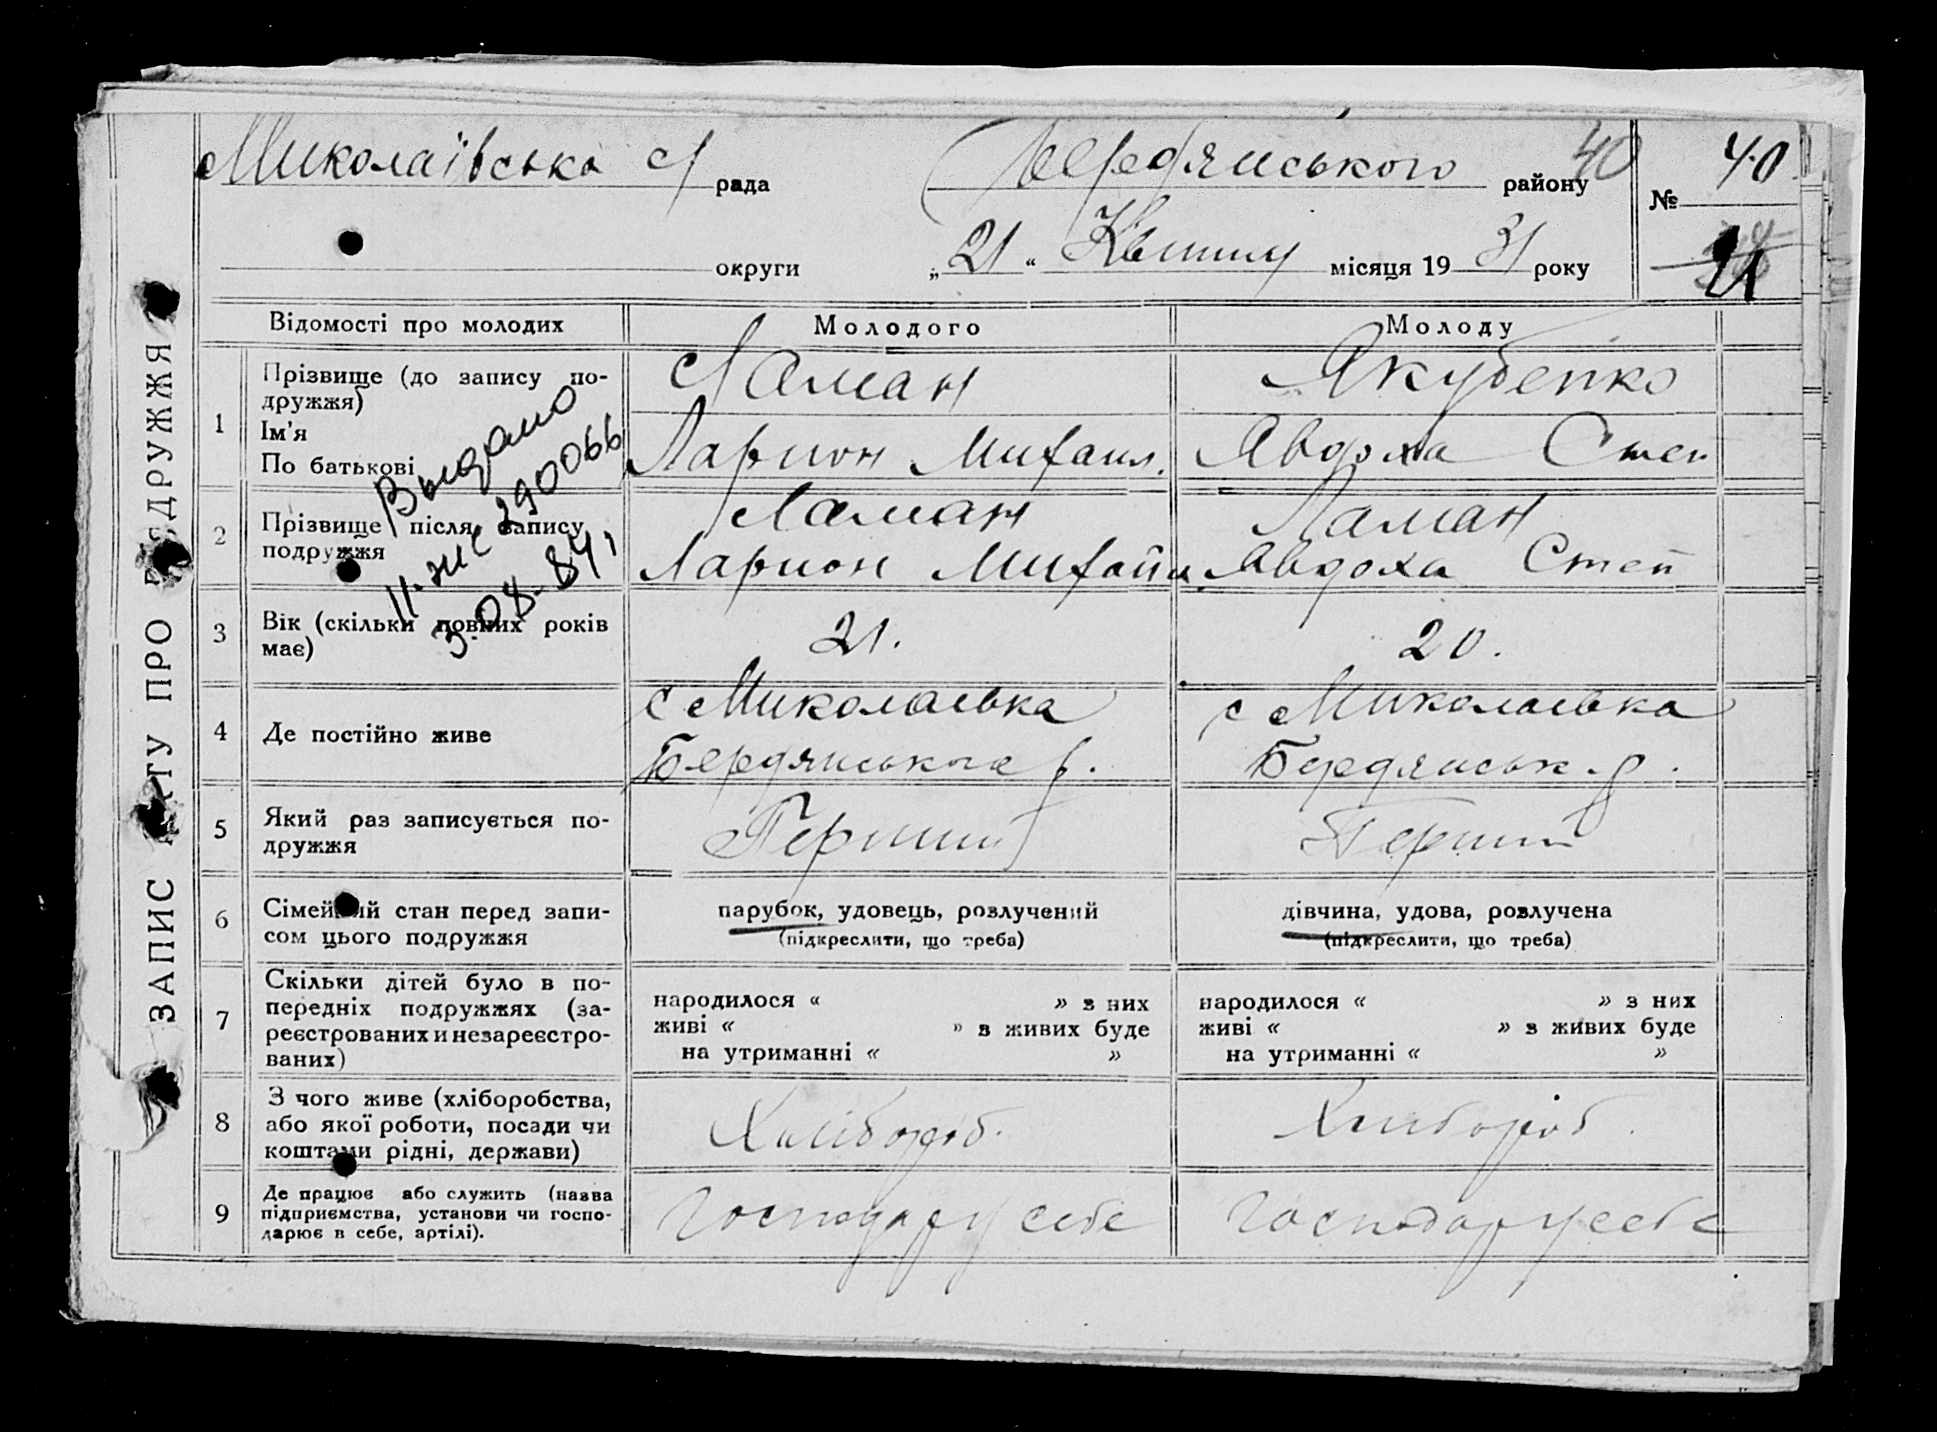 Миколаївська с/ рада Бердянського району 40 № 40
округи „21“ Квітня місяця 1931 року 21
ЗАПИС АКТУ ПРО ПОДРУЖЖЯ
Відомості про молодих Молодого Молоду
1 Прізвище (до запису по-
дружжя)
Ім'я
По батькові
Ламан Якубенко
Ларион Михаил. Авдоха Степ
Выдано
II-жс 290066
3.08.84,
2 Прізвище після запису
подружжя
Ламан Ламан
Ларион Михайл Авдоха Степ
3 Вік (скільки повних років
має)
21. 20.
4 Де постійно живе
с Миколаевка с Миколаевка
Бердянського р. Бердянськ. р.
5 Який раз записується по-
дружжя
Перший Перший
6 Сімейний стан перед запи-
сом цього подружжя
парубок, удовець, розлучений дівчина, удова, розлучена
(підкреслити, що треба) (підкреслити, що треба)
7 Скільки дітей було в по-
передніх подружжях (за-
реєстрованих и незареєстро-
ваних)
народилося « » з них народилося « » з них
живі « » в живих буде живі « » в живих буде
на утриманні « » на утриманні « »
8 З чого живе (хліборобства,
або якої роботи, посади чи
коштами рідні, держави)
Хлібороб. Хлибороб.
9 Де працює або служить (назва
підприємства, установи чи госпо-
дарює в себе, артілі).
Господарує себе Господарує себе